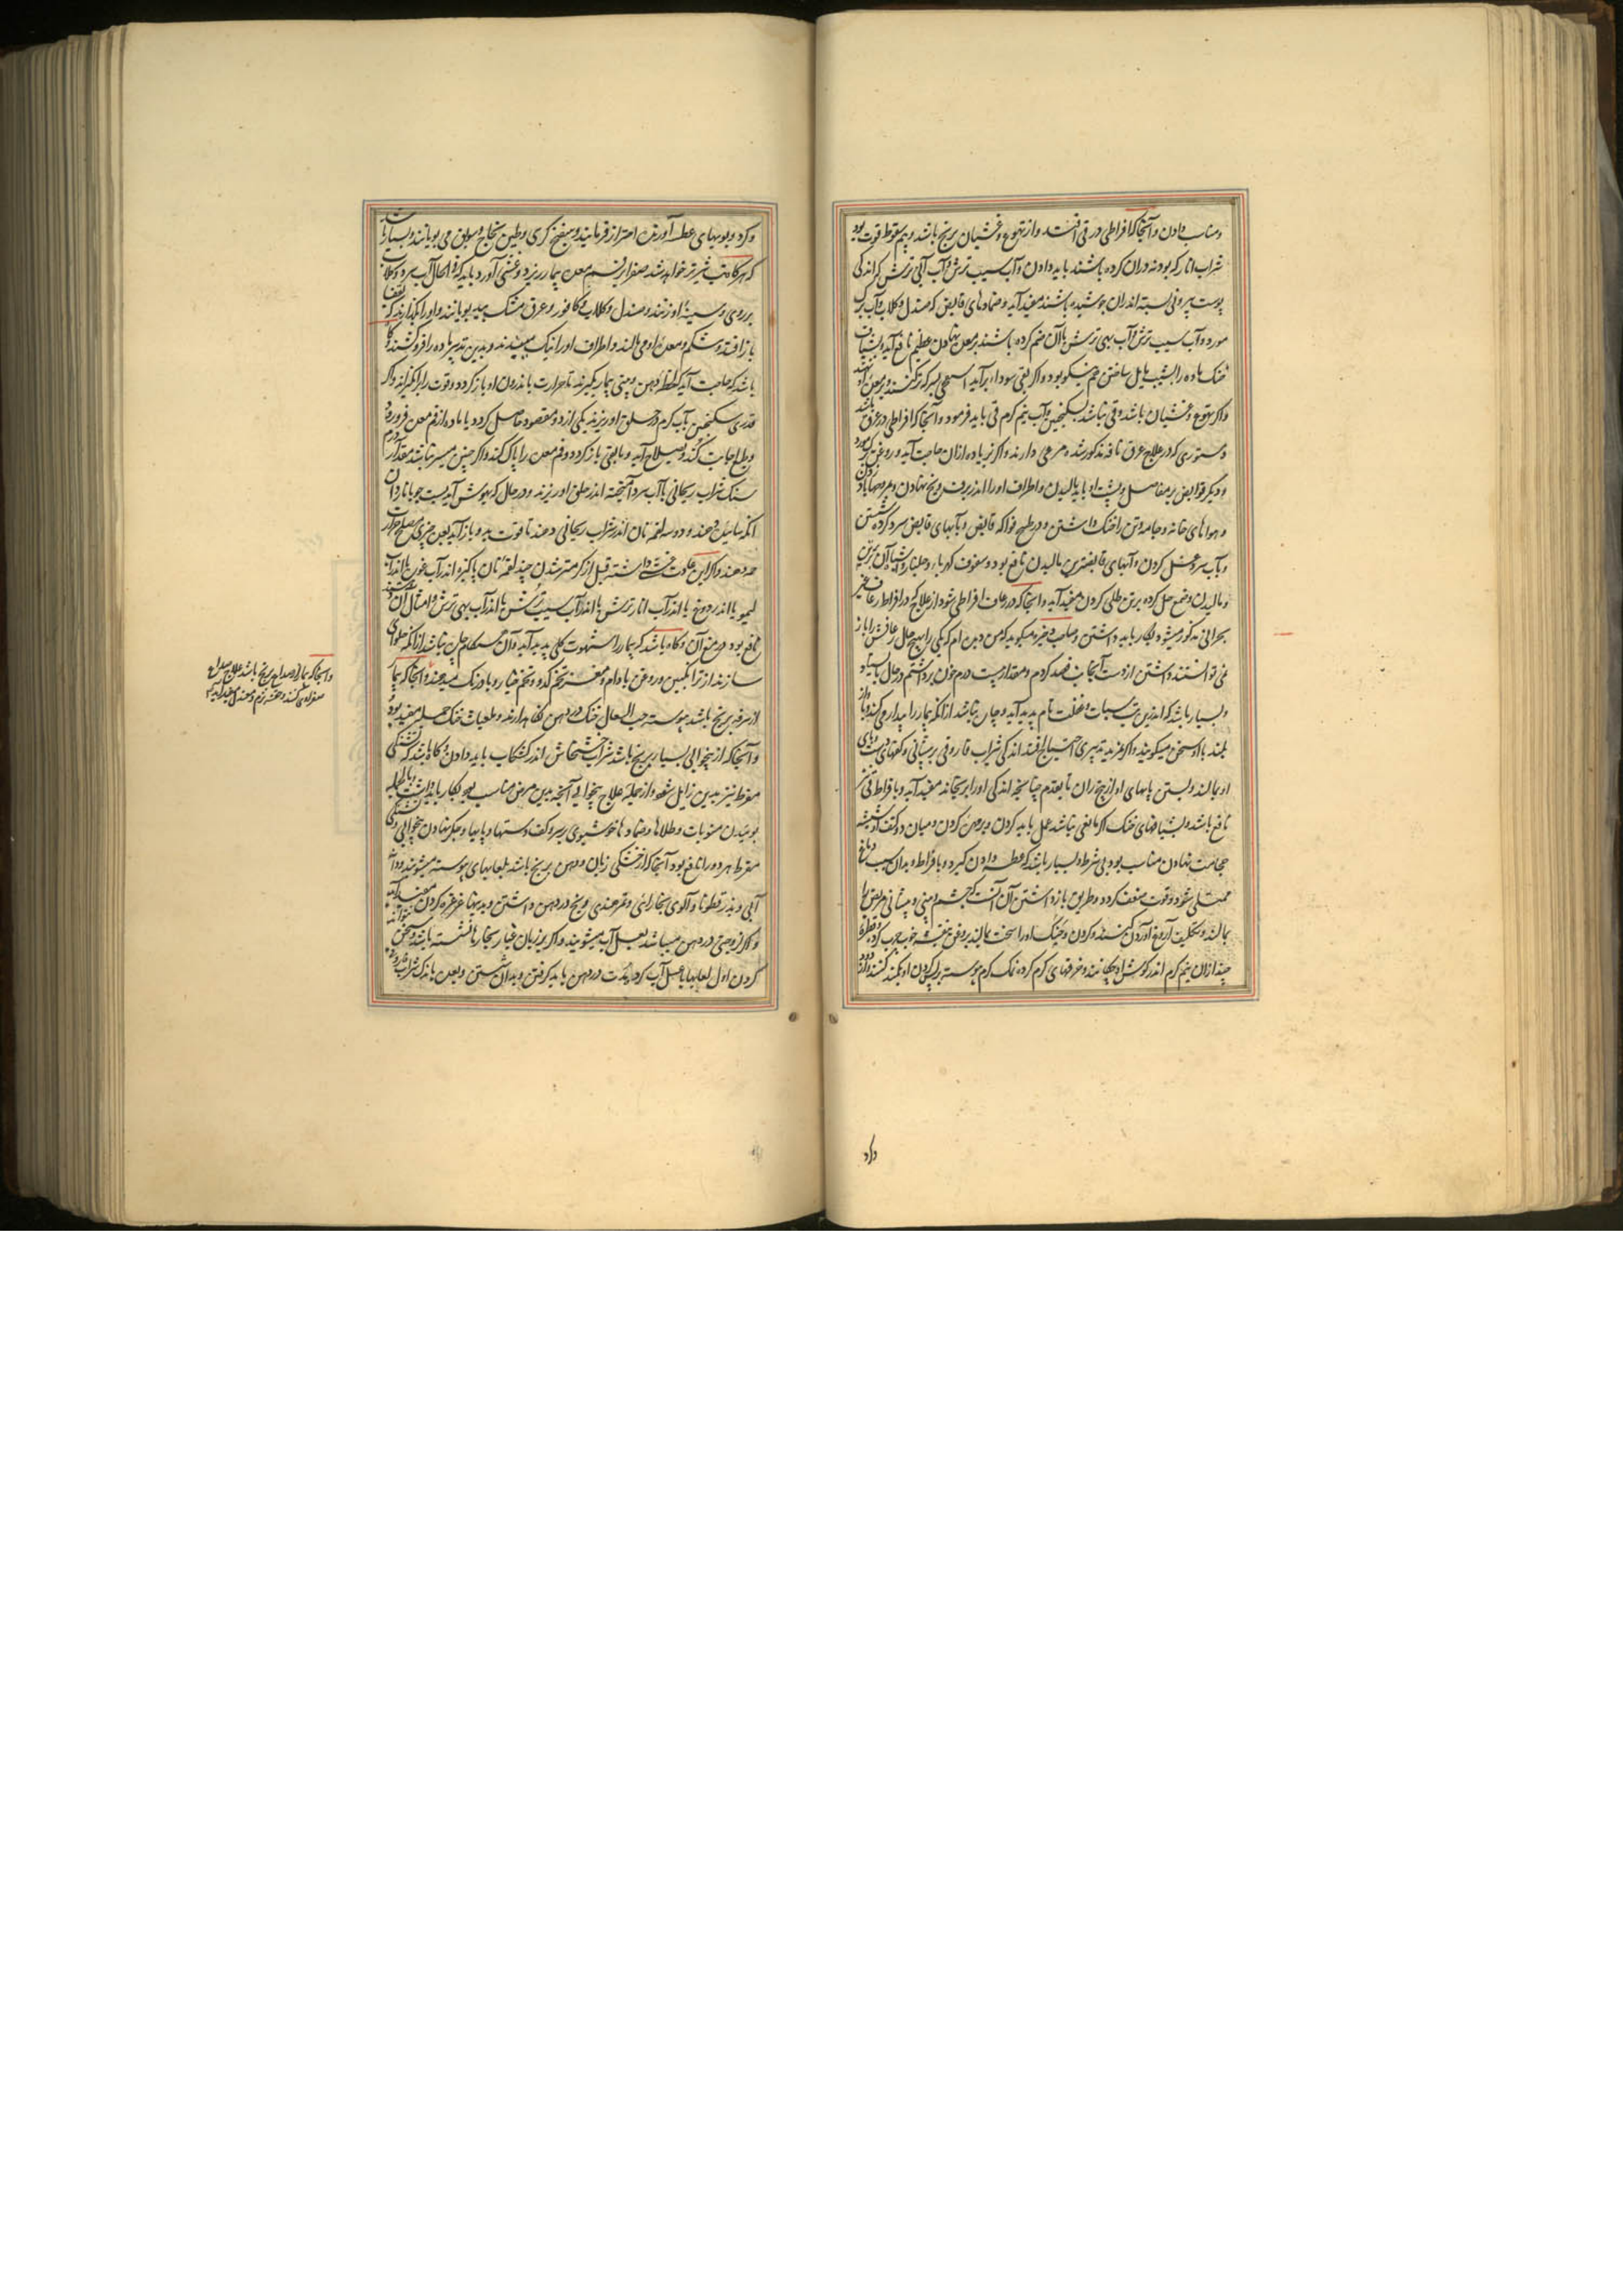 مناسب دادن و آنجا که افراطی در قی افتد و از تهوع و غشیان برنج باشند و بیم سقوط قوت بود
شراب انار که پودنه دران کرده باشند باید دادن و آب سیب ترش و آب آبی ترش که اندکی
پوست بیرونی پسته اندران جوشیده باشند مفید آید و ضمادهای قابض که صندل و گلاب و آب برک
مورد و آب سیب ترش و آب بهی ترش با آن ضم کرده باشند بر معده نهادن عظیم نافع آید و بشیاف
خنک ماده را بشیب مایل ساختن هم نیکو بود و اگر بقی سودا برآید اسفنجی بسرکه تر کنند و بر معده او نهند
و اگر تهوع و غشیان باشد و قی نباشد بسکنجبین و آب نیم گرم قی باید فرمود و آنجا که افراطی در عرق باشد
دستوری که در علاج عرق نافه مذکور شد مرعی دارند و اگر زیاده ازان حاجت آید روغن مورد
و دیگر قوابض بر مفاصل و پشت او باید مالیدن و اطراف او را اندر برف و یخ نهادن و بمروحها باد زدن
و هواهای خانه و جامه و تن را خنک داشتن و در طبیخ فواکه قابض و بآبهای قابض سرد کرده شستن
و بآب سرد غسل کردن و آبهای قابض بر تن مالیدن نافع بود و سفوف کهربا و جلنار و امثال آن بر تن
و مالیدن و صمغ حل کرده بر تن طلی کردن مفید آید و آنجا که در رعاف افراطی شود از علاج که در افراط رعاف غیر
بحرانی مذکور میشود بکار باید داشتن و صاحب ذخیره میگوید که من دیدم که یکی را بهیچ حال رعافش باز
نمی توانستند داشتن از دست آنجانب فصد کردم و مقدار بیست درم خون برداشتم در حال باستاد
و بسیار باشد که اندرین تب سبات و غفلت تام پدید آید و چاره نباشد ازانکه بیمار را بیدار می کنند و باواز
بلند با او سخن میگویند و اگر بمزید تدبیری احتیاج افتد اندکی شراب فاروقی بر پیشانی و کفهای دست و پای
او بمالند و بستن پایهای او از بیخ ران تا بقدم چنانچه اندکی او را برنجاند مفید آید و با فراط قی نیز
نافع باشد و بشیافهای خنک اگر مانعی نباشد عمل باید کردن و بر گردن و میان دو کتف او شیشه
حجامت نهادن مناسب بود بی شرط و بسیار باشد که عطسه دادن گیرد با فراط و بدان سبب دماغ
ممتلی شود و قوت ضعیف گردد و طریق باز داشتن آن آنست که چشم و بینی و پیشانی مریض را
بمالند و بتکلیف آروغ آوردن کنند و گردن و حنک او را سخت بمالند و بروغن بنفشه خوب چرب کرده و قطره
چند ازان نیم گرم اندر گوش او چکانند و خرقهای گرم کرده نمک گرم پیوسته بر پس گردن او تکمید کنند و از دود
داد
و گرد و بویهای عطسه آورنده احتراز فرمایند و سفنج کری و طین نجاح و سویق می بویانند و بسیار باشد
که هر گاه تب شیرتر خواهد شد صفرا بفم معده بیمار ریزد و غشی آورد باید که فی الحال آب سرد و گلاب
بر روی و سینه او زنند و صندل و گلاب و کافور و عرق مشک بید بویانند و او را نگذارند که بقفا
باز افتد و شکم و معده او می مالند و اطراف او را نیک می بندند و بدین تدبیر ماده را فرو کشند و گاه
باشد که حاجت آید که لحظه دهن و بینی بیمار بگیرند تا حرارت باندرون او باز گردد و قوت را برانگیزاند و اگر
قدری سکنجبین بآب گرم در حلق او ریزند نیکی آرد و مقصود حاصل گردد یا ماده از فم معده فرود رود
و طبع اجابت کند و بصلاح آید و یا بقی باز گردد و فم معده را پاک کند و اگر چنین میسر نباشد مقدار ده درم
سنک شراب ریحانی بآب سرد آمیخته اندر حلق او ریزند و در حال که بهوش آید پست جو با ناردان
انک سائیده دهند و دو سه لقمه نان اندر شراب ریحانی دهند تا قوت بدو باز آید بعد چیزی که مسکن حرارت
دهند و اگر این عادت غشی داشته قبل از گرمتر شدن چند لقمه نان پاکیزه اندر آب غوره یا اندر آب
لیمو یا اندر دوغ یا اندر آب انار ترش یا اندر آب سیب ترش یا اندر آب بهی ترش و امثال آن دهند
نافع بود در منع آن و گاه باشد که بیمار را شهوت کلی پدید آید و آن هنگام چاره نباشد ازانکه حلوای
سازند از ترانگبین و روغن بادام و مغز تخم کدو و تخم خیار و بادرنک میدهند و آنجا که بیمار
از سرفه برنج باشد پیوسته حب السعال خنک در دهن نگاه دارند و لعابات خنک جمله مفید بود
و آنجا که از بیخوابی بسیار برنج باشد شراب خشخاش اندر کشکاب باید دادن و گاه باشد که تشنگی
مفرط نیز بدین زایل شود و از جمله علاج بیخوابی آنچه بدین مرض مناسب بود بکار باید داشت بالجمله
بوئیدن منومات و طلاها و ضمادها خوشبوی بر سر و کف دستها و پایها و جگر نهادن بیخوابی و تشنگی
مفرط هر دو را نافع بود و آنجا که از خشکی زبان و دهن برنج باشد بلعابهای پیوسته میشویند و دانه
آبی و بذرقطونا و آلوی بخارایی و تمر هندی و یخ در دهن داشتن و بدینها غرغره کردن مفید آید
و اگر لزوجتی در دهن میباشد بعسل آب میشویند و اگر بر زبان غبار بخار نافشسته باشد و سخن نتواند
کردن اول لعابها با عسل آب کرده در دهن باید گرفتن و بدان شستن و بعده باندک شراب
و آنجا که بیمار از صداع برنج باشد علاج صداع
صفراوی کنند و حقنه نرم و صندل مفید آید